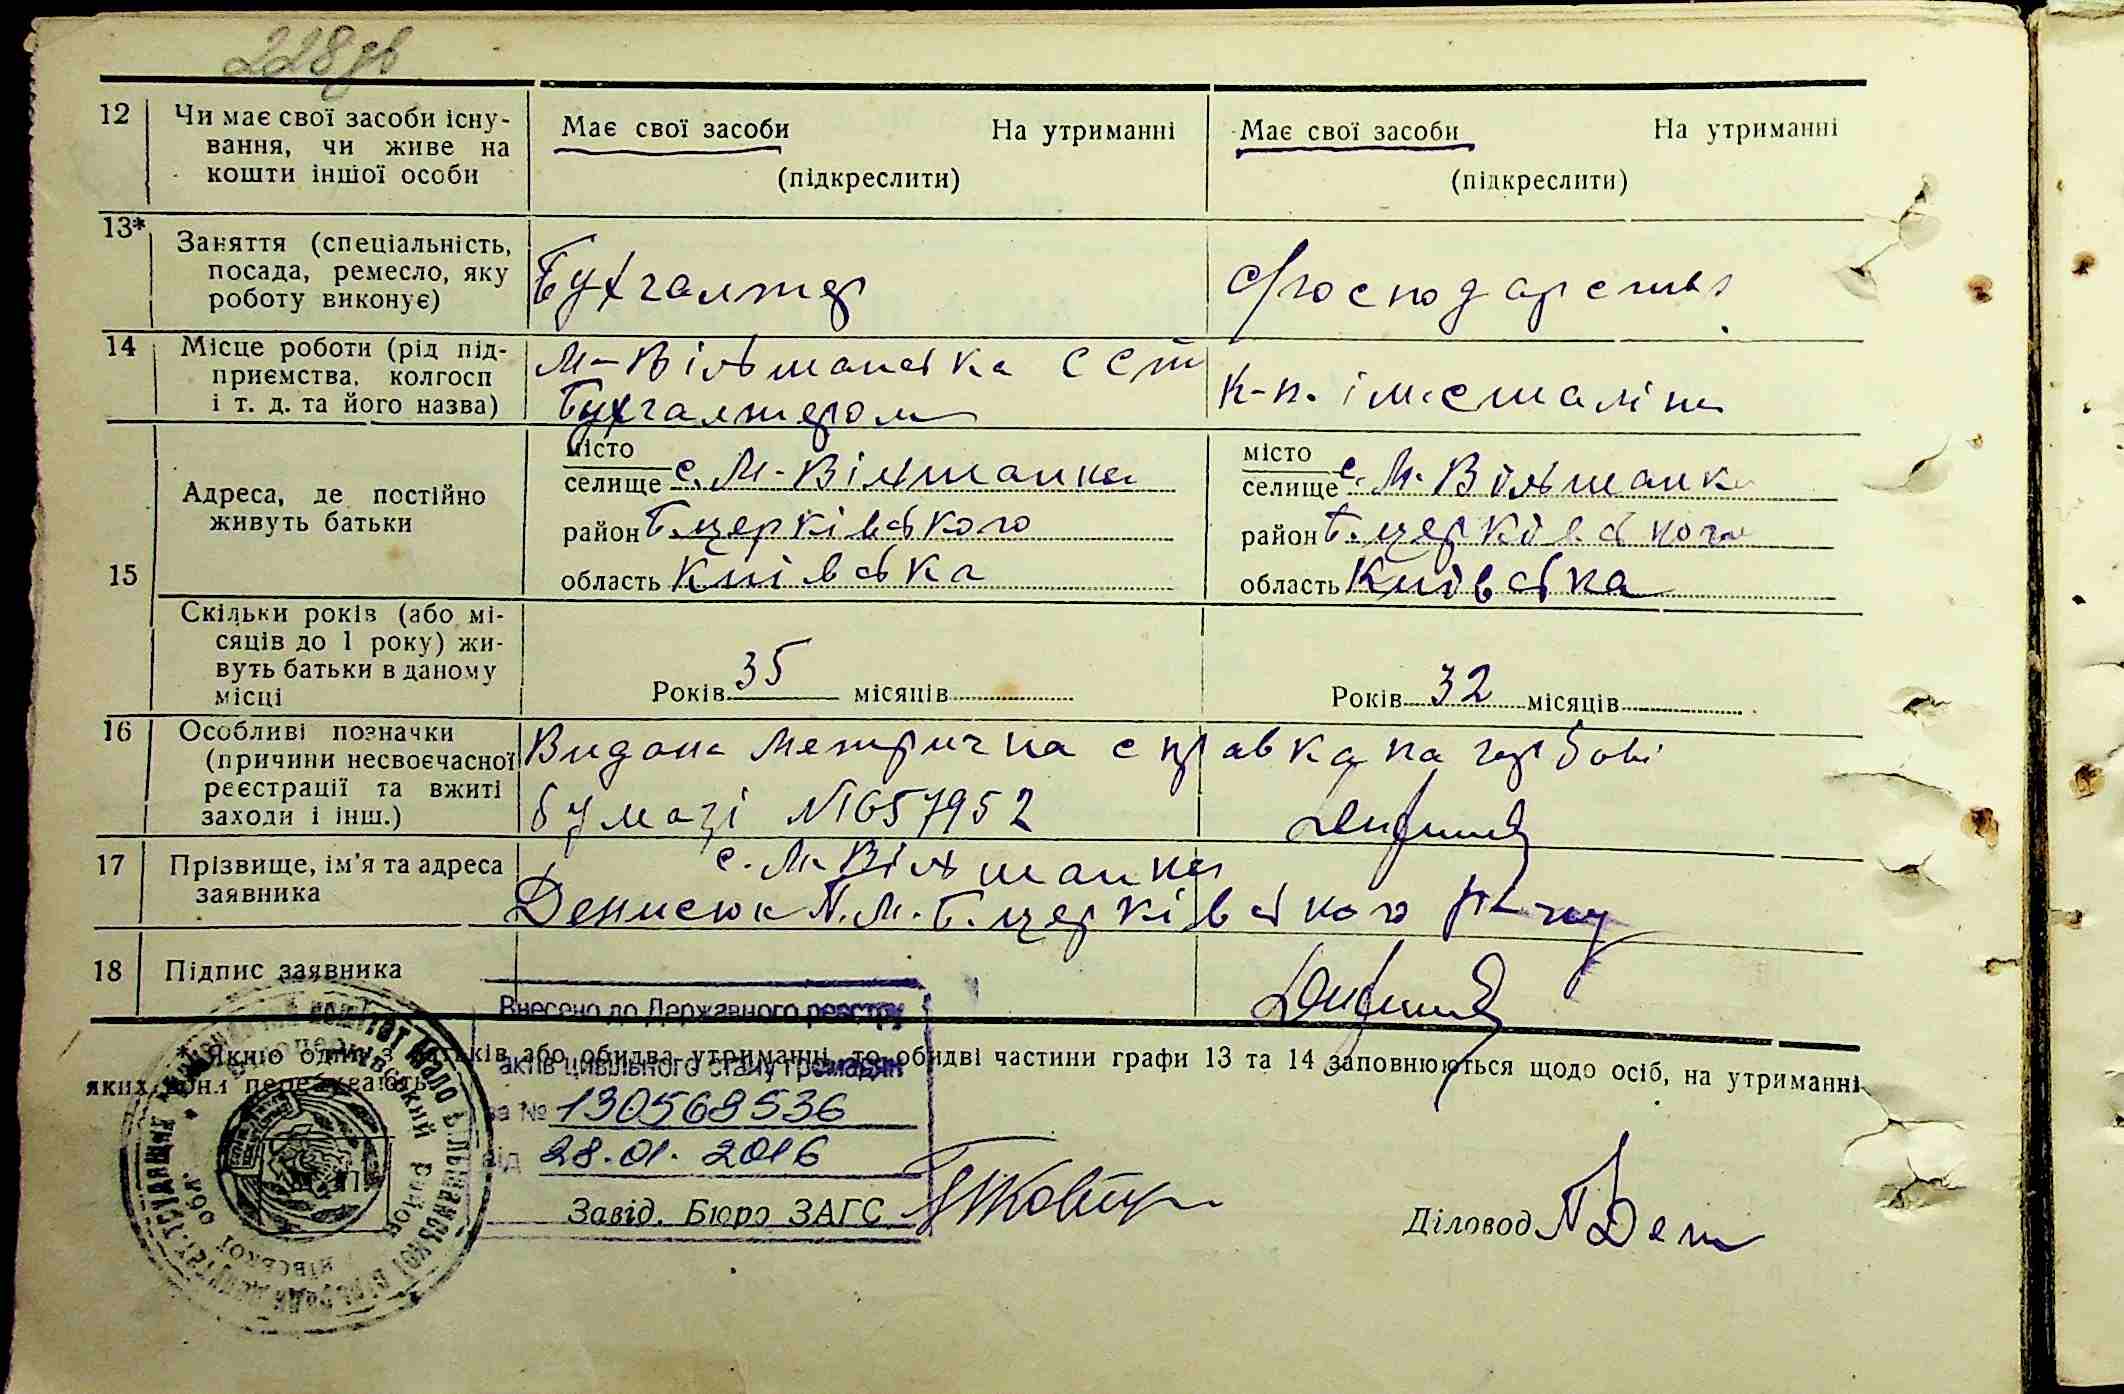 228зв
12 Чи має свої засоби існу-
вання, чи живе на
кошти іншої особи
Має свої засоби На утриманні
(підкреслити)
Має свої засоби На утриманні
(підкреслити)
13* Заняття (спеціальність,
посада, ремесло, яку
роботу виконує)
Бухгалтер
14 Місце роботи (рід під-
приємства, колгосп
і т. д. та його назва)
М-Вільшанська ССТ
Бухгалтером
К-п. ім. Сталіна
15 Адреса, де постійно
живуть батьки
місто
селище с. М-Вільшанка
район Б.церківського
область Київська
місто
селище с. М-Вільшанка
район Б.церківського
область Київська
Скільки років (або мі-
сяців до 1 року) жи-
вуть батьки в даному
місці
Років 35 місяців
Років 32 місяців
16 Особливі позначки
(причини несвоєчасної
реєстрації та вжиті
заходи і інш.)
Видана метрична справка на гербові
бумазі №657952
17 Прізвище, ім'я та адреса
заявника
с. М-Вільшанка
Денисюк П.М. Б.церківського р-ну
18 Підпис заявника
Внесено до Державного реєстру
актів цивільного стану громадян
за № 130568536
від 28.01.2016
Якщо один з батьків або обидва утриманні, то обидві частини графи 13 та 14 заповнюються щодо осіб, на утриманні
яких вони перебувають
Завід. Бюро ЗАГС
Діловод